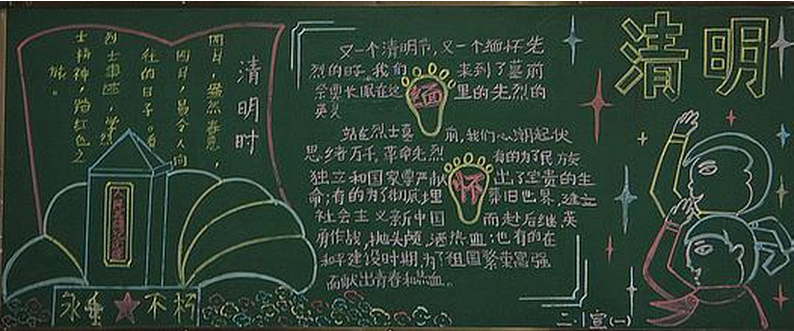 清明
清明时
四月，虽然春意，
四月，最令人向
往的日子。看
烈士事迹，学烈
士精神，踏红色之
旅。
人民英雄纪念碑
永垂不朽
又一个清明节，又一个缅怀先
烈的日子，我们来到了墓前
祭奠长眠在这里的先烈的
英灵
缅
站在烈士墓前，我们心潮起伏
思绪万千，革命先烈有的为了民族
怀
独立和国家尊严献出了宝贵的生
命；有的为了彻底埋葬旧世界，建立
社会主义新中国而赴后继，英
勇作战，抛头颅，洒热血；也有的在
和平建设时期，为了祖国繁荣富强
而献出青春和热血。
二.1宣(一)